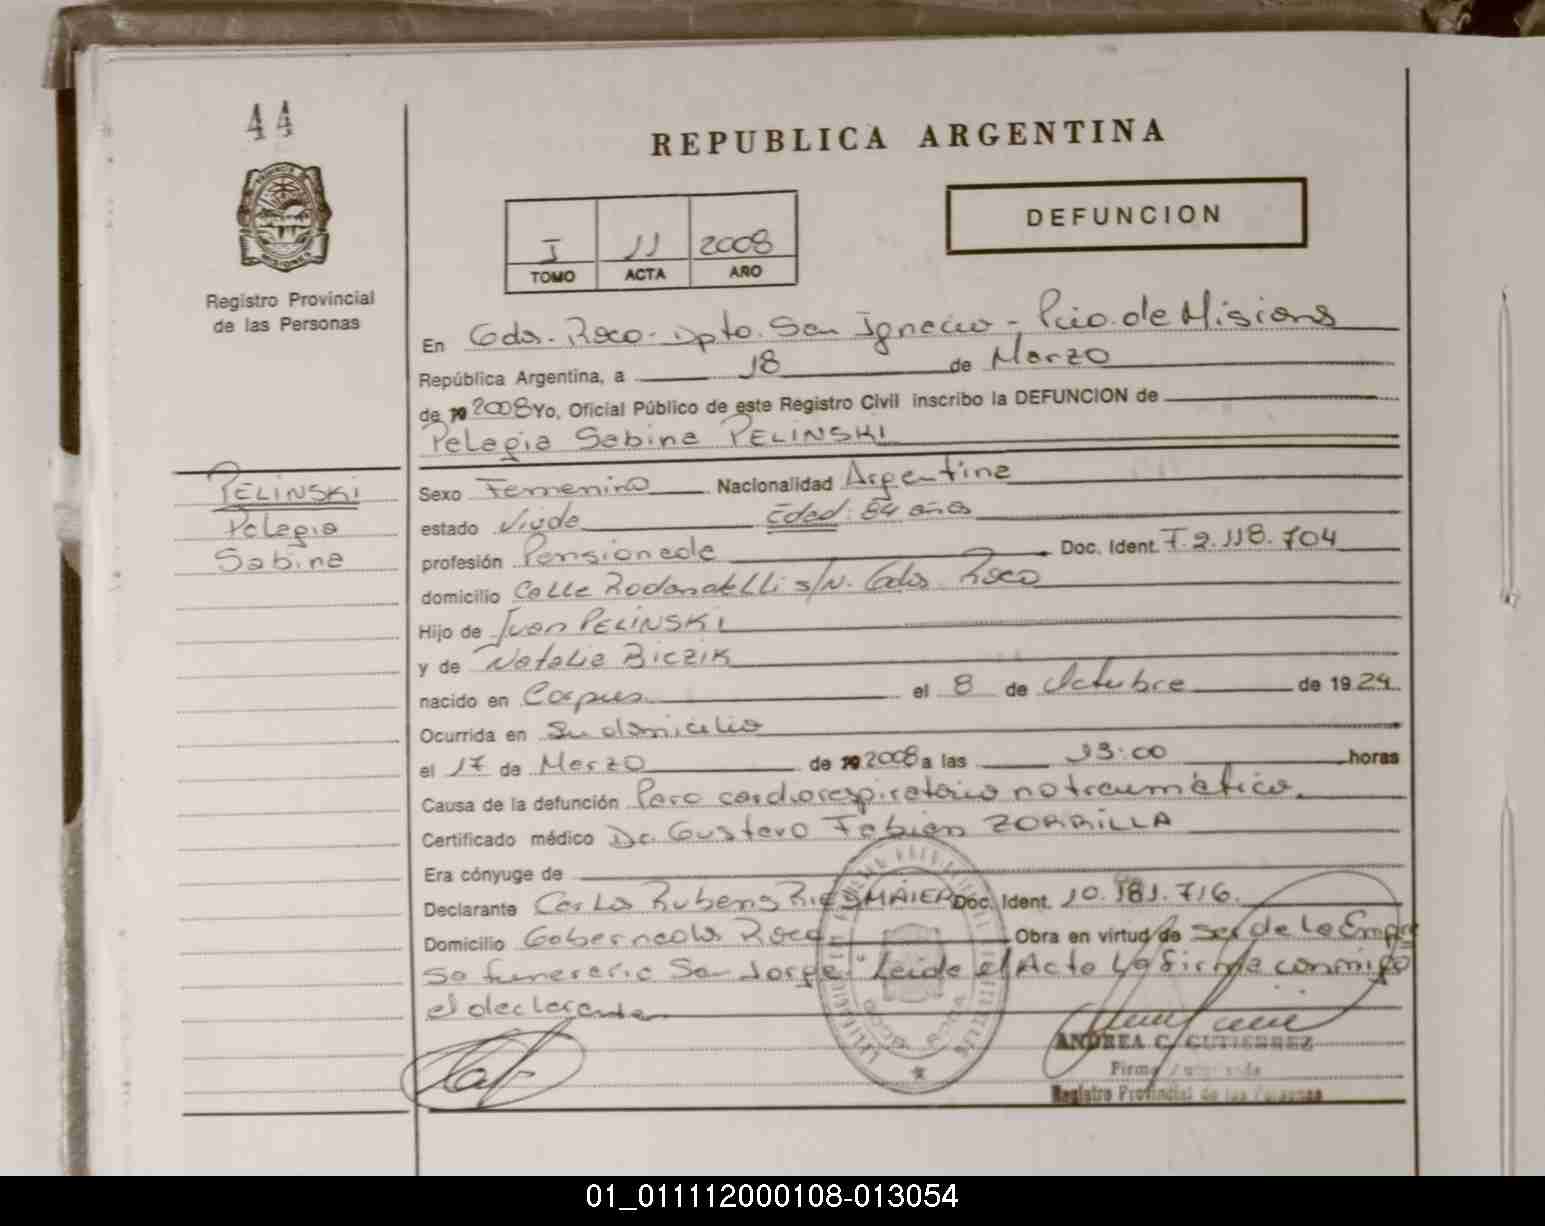 44
REPUBLICA ARGENTINA
DEFUNCION
I 11 2008
TOMO ACTA AÑO
Registro Provincial
de las Personas
En Gdor. Roca - Dpto. San Ignacio - Pcia. de Misiones
República Argentina, a 18 de Marzo
de 19 2008 Yo, Oficial Público de este Registro Civil inscribo la DEFUNCION de
Pelagia Sabina PELINSKI
PELINSKI
Pelagia
Sabina
Sexo Femenino Nacionalidad Argentina
estado Viuda Edad: 84 años
profesión Pensionada Doc. Ident. F. 2.118.704
domicilio Calle s/N. Gdor Roca
Hijo de Juan PELINSKI
y de Natalia BICZIK
nacido en Corpus el 8 de Octubre de 1924
Ocurrida en su domicilio
el 17 de Marzo de 19 2008 a las 13:00 horas
Causa de la defunción Paro cardiorespiratorio no traumático.
Certificado médico Dr. Gustavo Fabian ZORRILLA
Era cónyuge de
Declarante Carlos Rubens RIESMAIER Doc. Ident. 10.181.716.
Domicilio Gobernador Roca Obra en virtud de ser de la Empre
sa funeraria San Jorge." Leida el Acta la firma conmigo
el declarante.
ANDREA C. GUTIERREZ
Firma Autorizada
Registro Provincial de las Personas
01_011112000108-013054